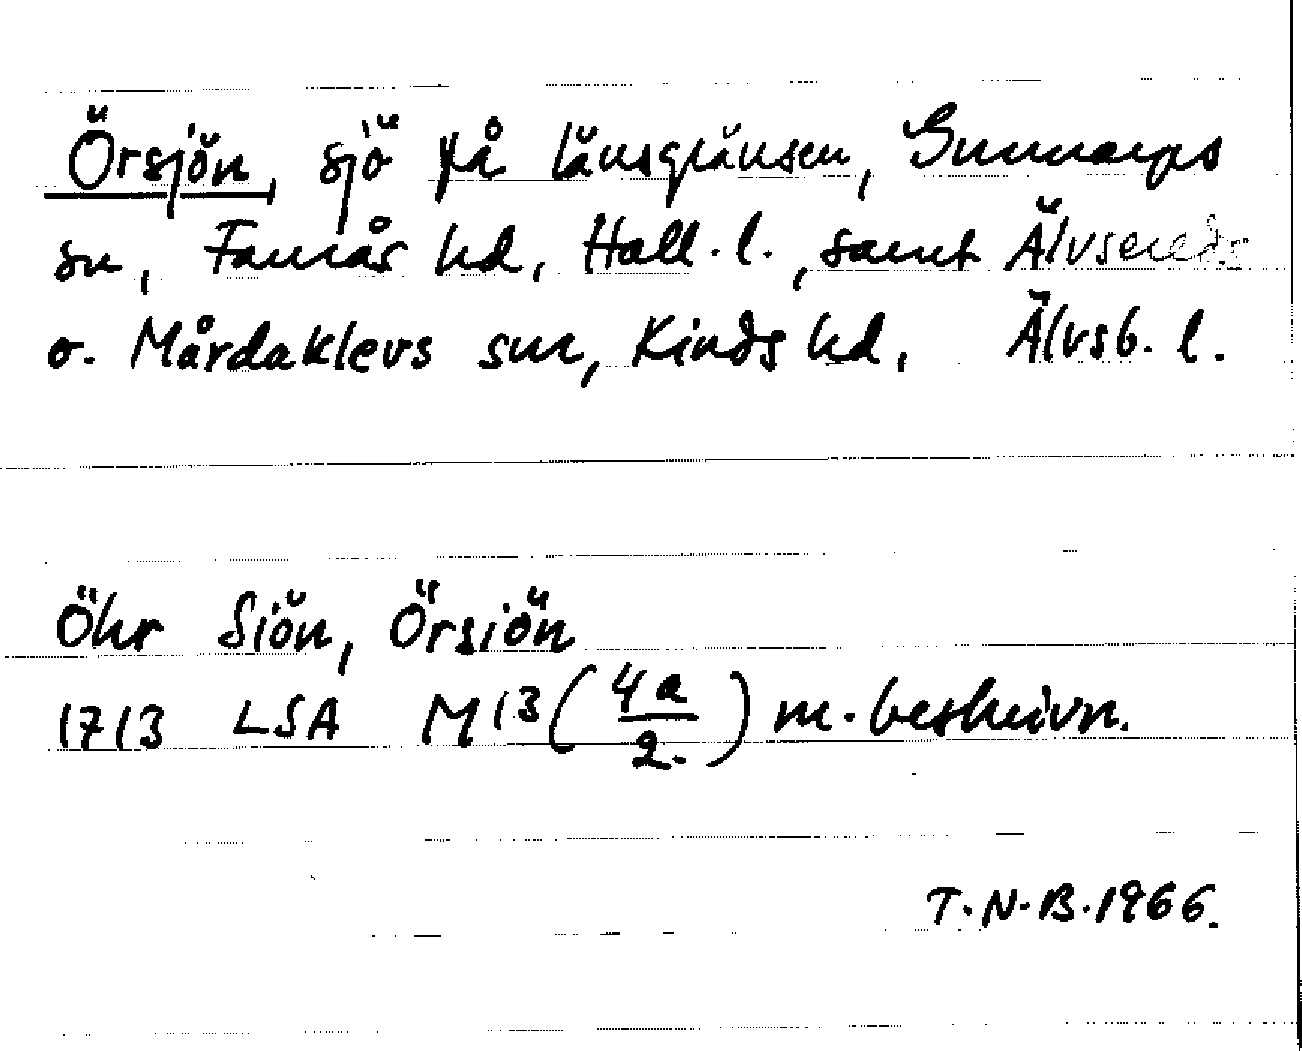 Örsjön, sjö på länsgränsen, Gunnarps
sn, Faurås hd, Hall. l., samt Älvsereds
o. Mårdaklevs snr, Kinds hd, Älvsb. l.
Öhr Siön, Örsiön
1713 LSA M13 (4a/2.) m. beskrivn.
T.N.B. 1966.